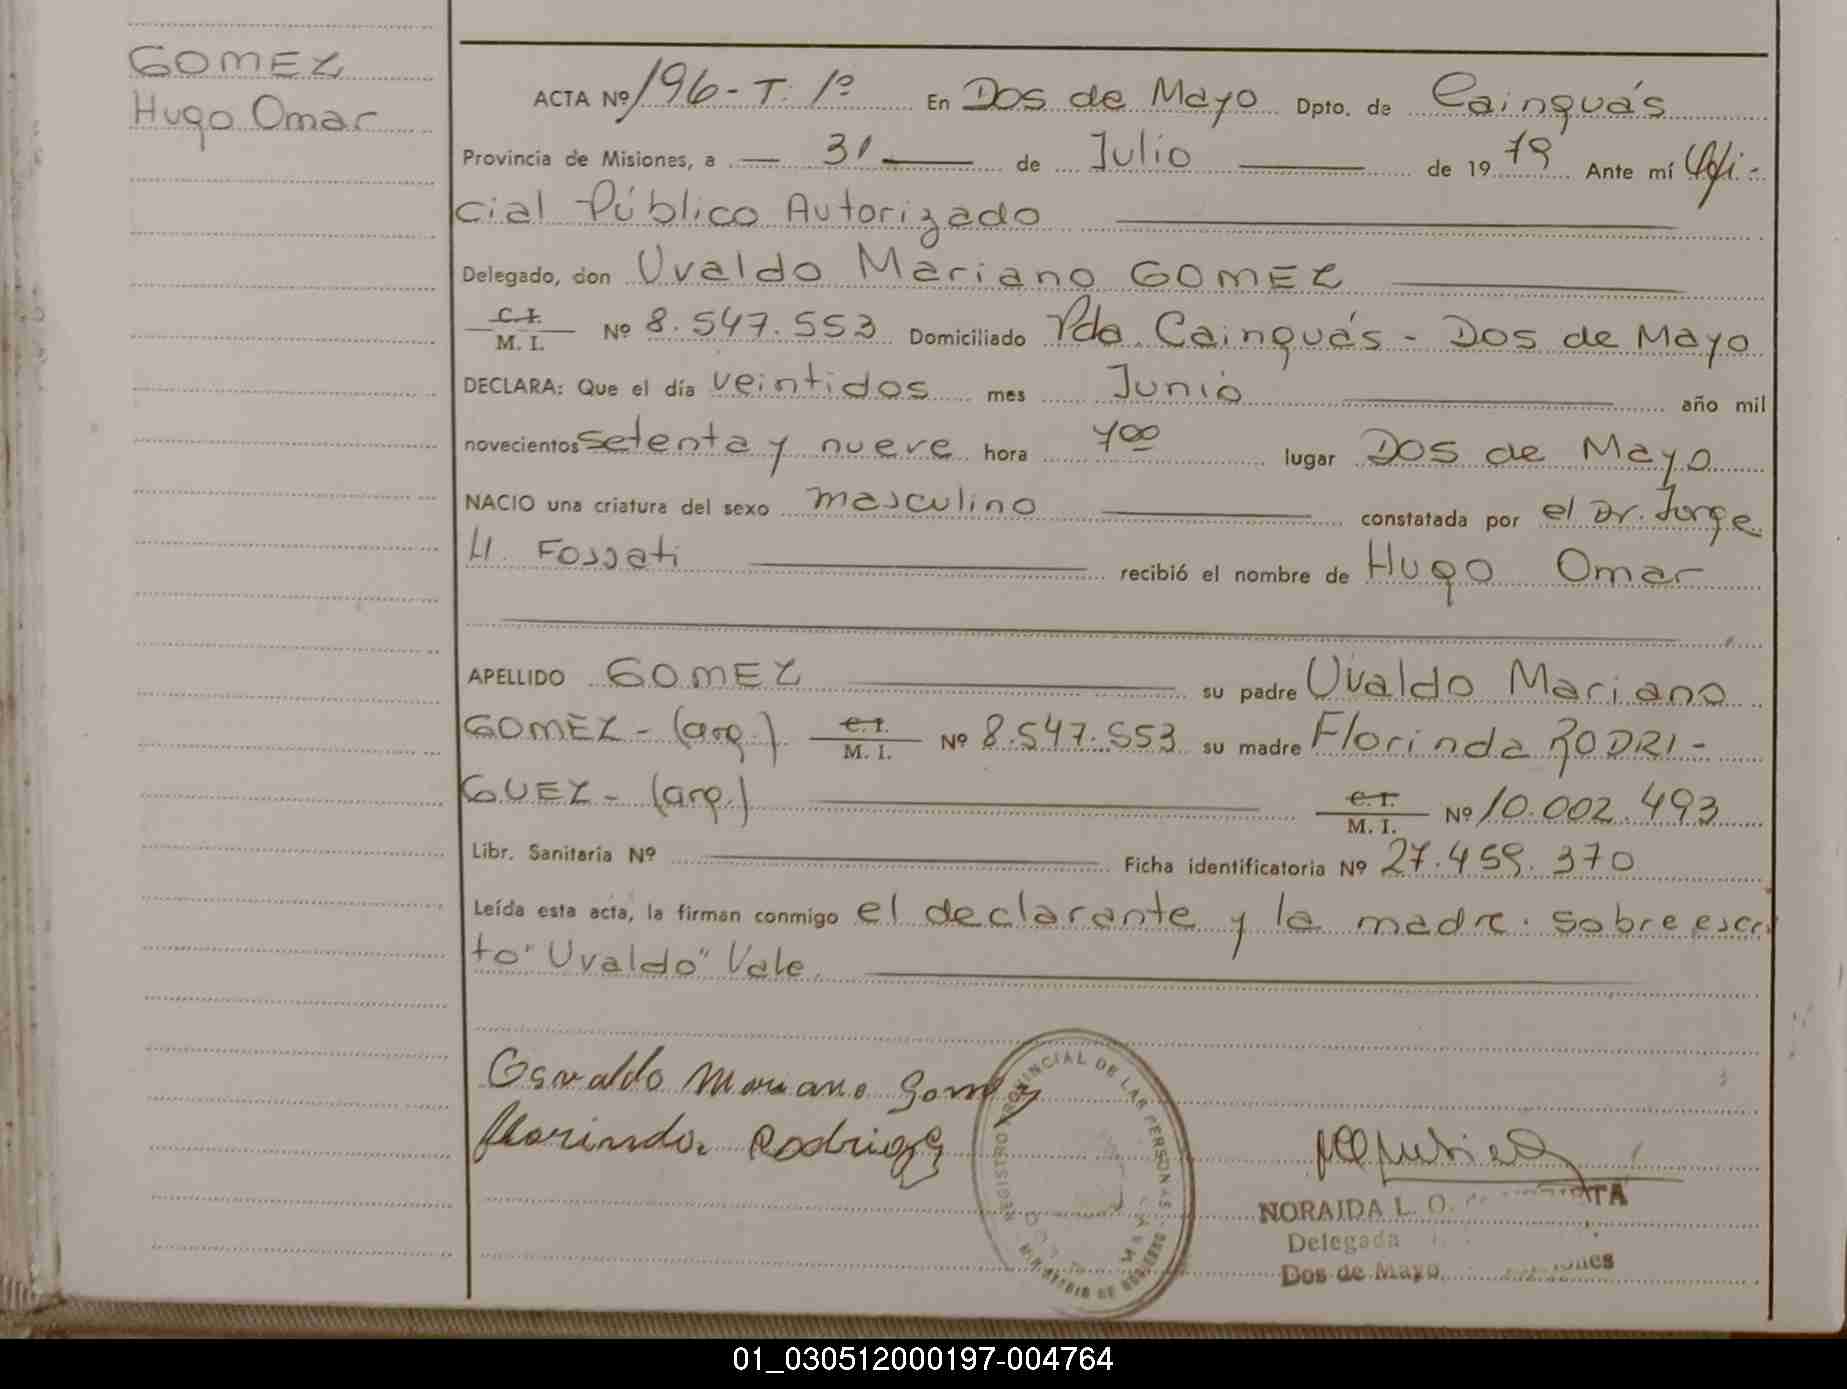 GOMEZ
Hugo Omar
ACTA Nº 196 - T. 1º En Dos de Mayo Dpto. de Cainguás
Provincia de Misiones, a — 31 — de Julio — de 19 79 Ante mí Ofi-
cial Público Autorizado
Delegado, don Uvaldo Mariano GOMEZ
C.I. M. I. Nº 8.547.553 Domiciliado Pda. Cainguás - Dos de Mayo
DECLARA: Que el día veintidos mes Junio año mil
novecientos setenta y nueve hora 7ºº lugar Dos de Mayo
NACIO una criatura del sexo masculino constatada por el Dr. Jorge
Ll. Fossati recibió el nombre de Hugo Omar
APELLIDO GOMEZ su padre Uvaldo Mariano
GOMEZ - (arg.) C.I. M. I. Nº 8.547.553 su madre Florinda RODRI-
GUEZ - (arg.) C.I. M. I. Nº 10.002.493
Libr. Sanitaria Nº Ficha identificatoria Nº 27.459.370
Leída esta acta, la firman conmigo el declarante y la madre. Sobreescri
to "Uvaldo" Vale.
Osvaldo Mariano Gomez
Florinda Rodriguez
REGISTRO PROVINCIAL DE LAS PERSONAS
MINISTERIO DE GOBIERNO
NORAIDA L. O.
Delegada
Dos de Mayo,
01_030512000197-004764